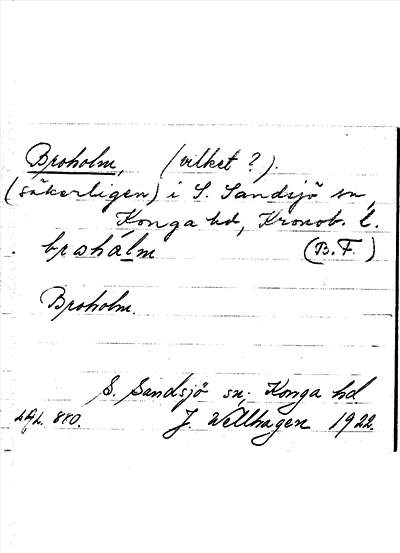 Broholm, (vilket?).
(säkerligen) i S. Sandsjö sn,
Konga hd, Kronob. l.
brohålm (B.F.)
Broholm.
S. Sandsjö sn. Konga hd
LAL. 880. J. Wellhagen 1922.